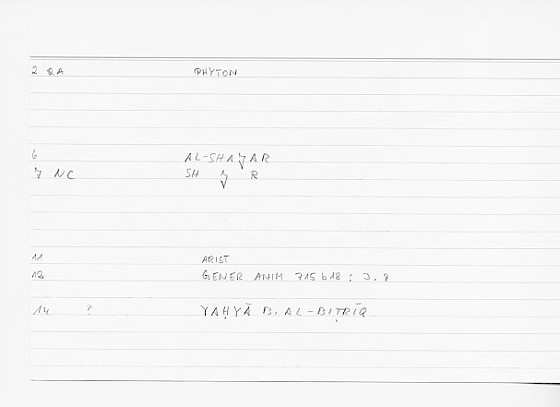 2 QA PHYTON
6 AL-SHAJAR
7 NC SH J R
11 ARIST
12 GENER ANIM 715b18 ; 3.8
14 ? YAḤYĀ B. AL-BIṬRĪQ